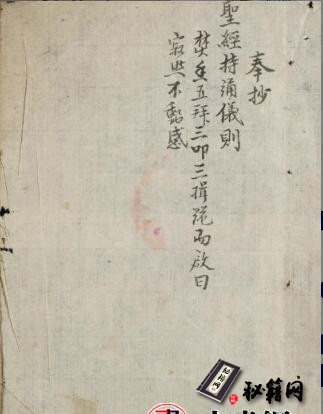 奉抄
聖經持誦儀則
焚香五拜三叩三揖跪而啟曰
寂然不動感
秘籍网